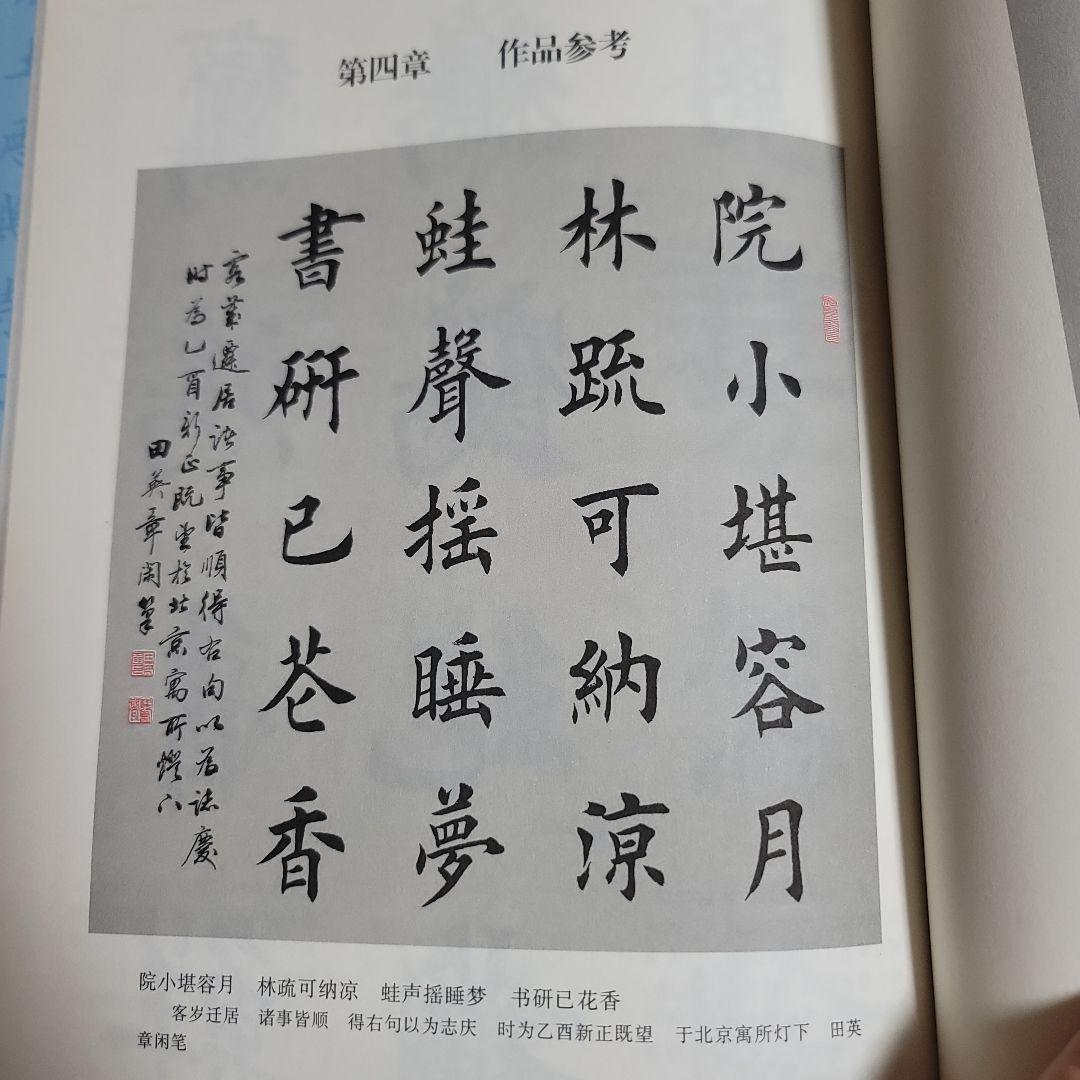 第四章 作品参考
院小堪容月
林疏可納涼
蛙聲摇睡夢
書研已花香
客歲遷居諸事皆順得右句以為誌慶
时為乙酉新正既望於北京寓所燈下
田英章閑筆
院小堪容月 林疏可纳凉 蛙声摇睡梦 书研已花香
客岁迁居 诸事皆顺 得右句以为志庆 时为乙酉新正既望 于北京寓所灯下 田英
章闲笔